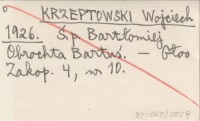 KRZEPTOWSKI Wojciech
1926. Ś.p. Bartłomiej
Obrochta Bartuś. – Głos
Zakop. 4, nr 10.